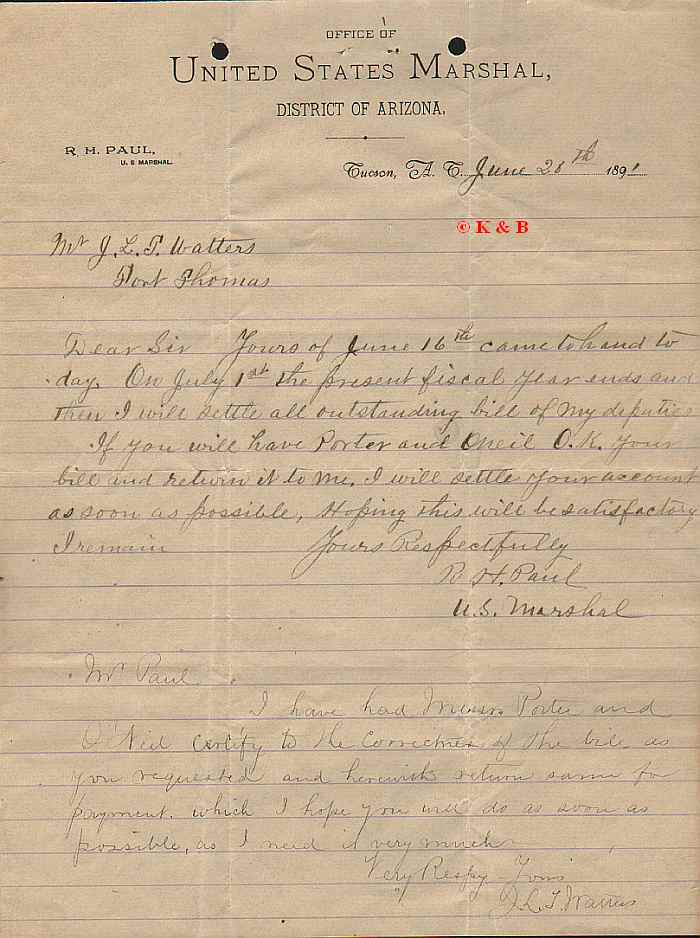 OFFICE OF
UNITED STATES MARSHAL,
DISTRICT OF ARIZONA.
R. H. PAUL,
U. S. MARSHAL.
Tucson, A. T. June 26th 1891
© K & B
Mr J. L. T. Watters
Fort Thomas
Dear Sir Yours of June 16th came to hand to
day. On July 1st the present fiscal year ends and
then I will settle all outstanding bill of my deputies
If you will have Porter and Oneil O.K. your
bill and return it to me, I will settle your account
as soon as possible, Hoping this will be satisfactory
I remain Yours Respectfully
R. H. Paul
U.S. Marshal
Mr Paul
I have had Messrs. Porter and
O'Neil certify to the correctness of the bill as
you requested and herewith return same for
payment. which I hope you will do as soon as
possible, as I need it very much
Very Respy Yours
J. L. T. Watters